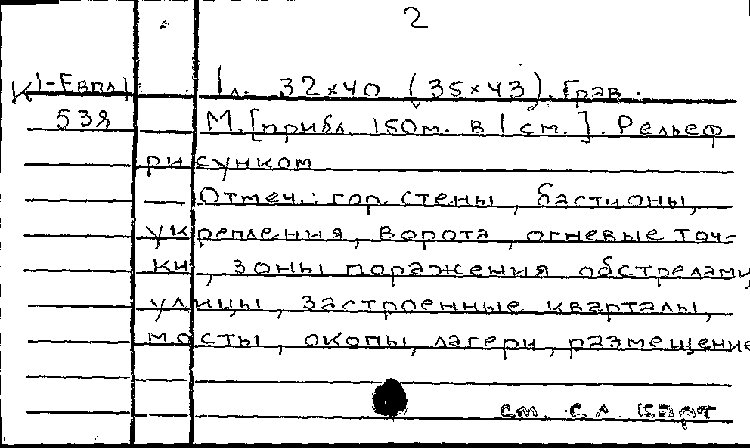 2
К1-Евпл 1л. 32×40 (35×43). Грав.
538 М. [прибл. 150м. в 1 см.]. Рельеф
рисунком
Отмеч.: гор. стены, бастионы,
укрепления, ворота, огневые точ-
ки, зоны поражения обстрелами,
улицы, застроенные кварталы,
мосты, окопы, лагери, размещение
см. сл. карт